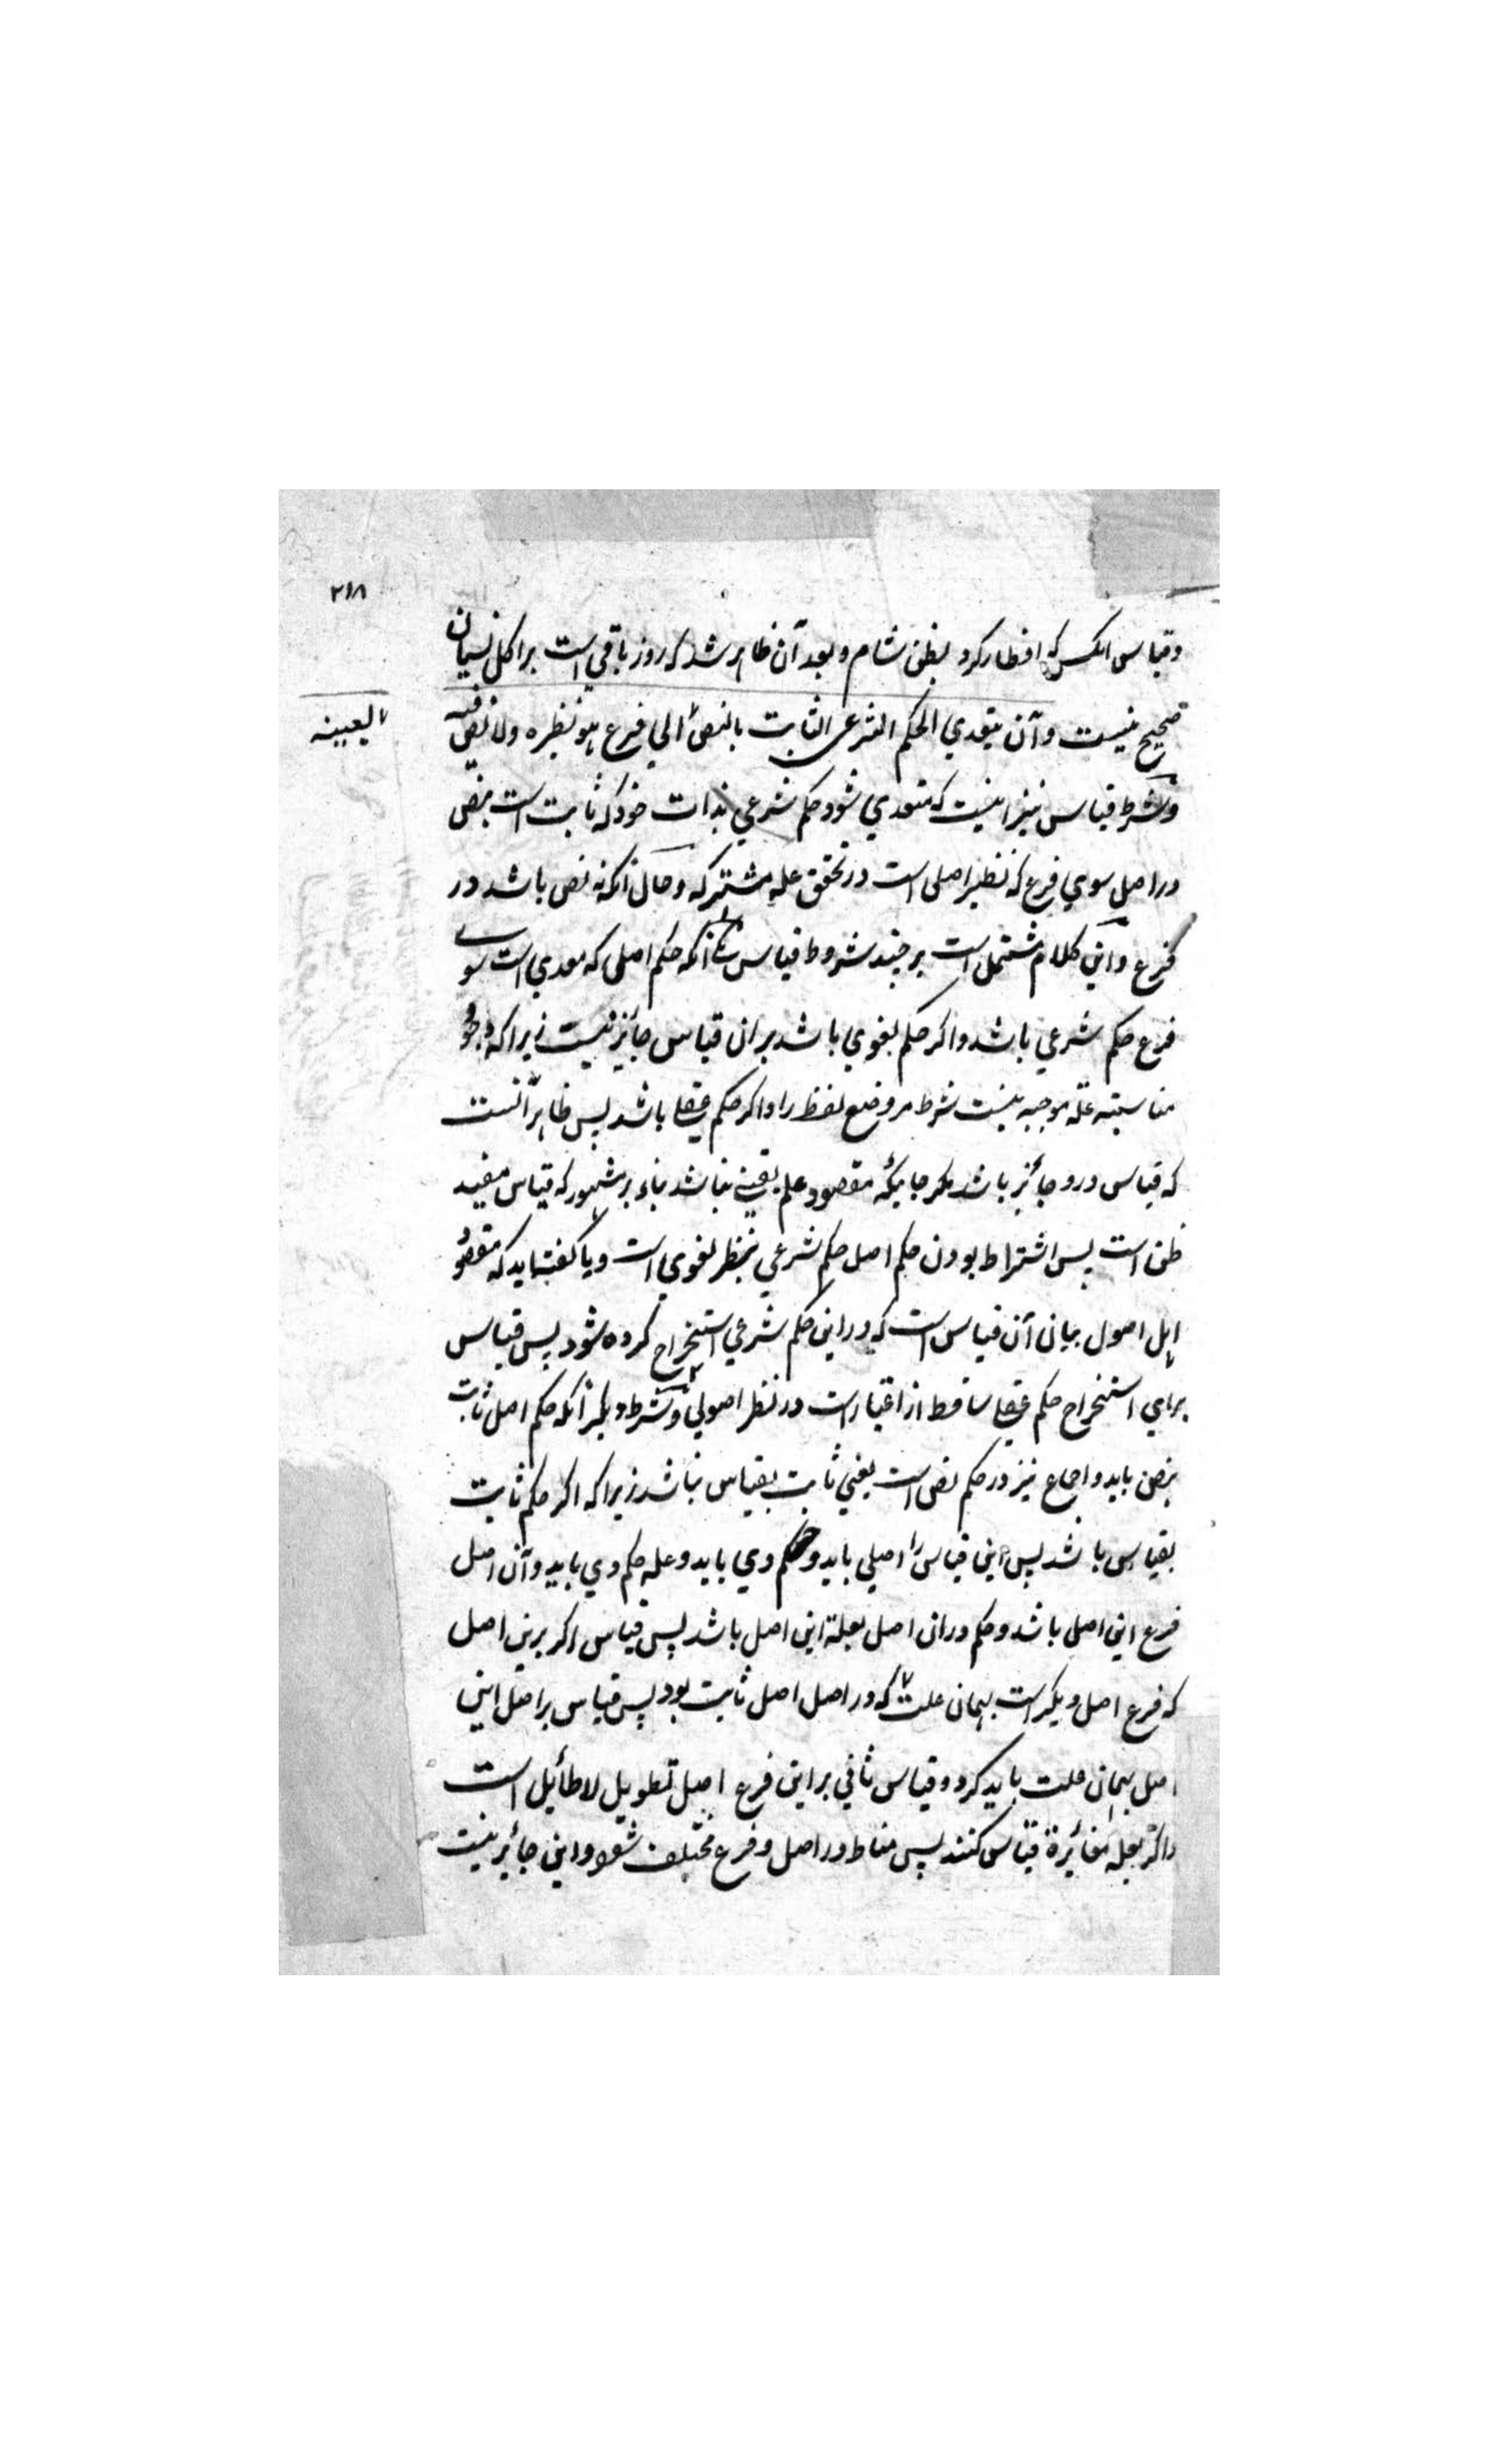 ۲۱۸
وقیاس انکس که افطار کرد بظن شام و بعد آن ظاهر شد که روز باقی است بر اکل نسیان
صحیح نیست وآن یتعدي الحکم الشرعی الثابت بالنص الي فرع هو نظیره ولا نص فیه
بعینه
وشرط قیاس نیز اینست که متعدي شود حکم شرعي بذات خود که ثابت است بنص
در اصل سوي فرع که نظیر اصل است در تحقق عله مشترکه وحال آنکه نه نص باشد در
فرع واین کلام مشتمل است بر چند شروط قیاس آنکه حکم اصلی که معدي است سوے
فرع حکم شرعي باشد واکر حکم لغوي باشد بر ان قیاس جائز نیست زیرا که وجود
مناسبته عله موجبه نیست شرط مر وضع لفظ را واکر حکم عقلے باشد پس ظاهر آنست
که قیاس درو جائز باشد مکر جائیکه مقصود علم یقینے نباشد بناء بر مشهور که قیاس مفید
ظن است پس اشتراط بودن حکم اصل حکم شرعي بنظر لغوي است ویا کفته اید که مقصود
اهل اصول بیان آن قیاس است که در این حکم شرعي استخراج کرده شود پس قیاس
براي استخراج حکم عقلے ساقط از اعتبار است در نظر اصولي وشرط دیکر آنکه حکم اصل ثابت
بنص باید واجماع نیز در حکم نص است یعني ثابت بقیاس نباشد زیرا که اکر حکم ثابت
بقیاس باشد پس این قیاس را اصلي باید وحکم وي باید وعله حکم وي باید وآن اصل
فرع این اصل باشد وحکم در ان اصل بعلة این اصل باشد پس قیاس اکر برین اصل
که فرع اصل دیکر است بهمان علت که در اصل اصل ثابت بود پس قیاس بر اصل این
اصل بهمان علت باید کرد وقیاس ثاني بر این فرع اصل تطویل لاطائل است
واکر بعله مغائرة قیاس کنند پس مناط در اصل وفرع مختلف شود واین جائز نیست